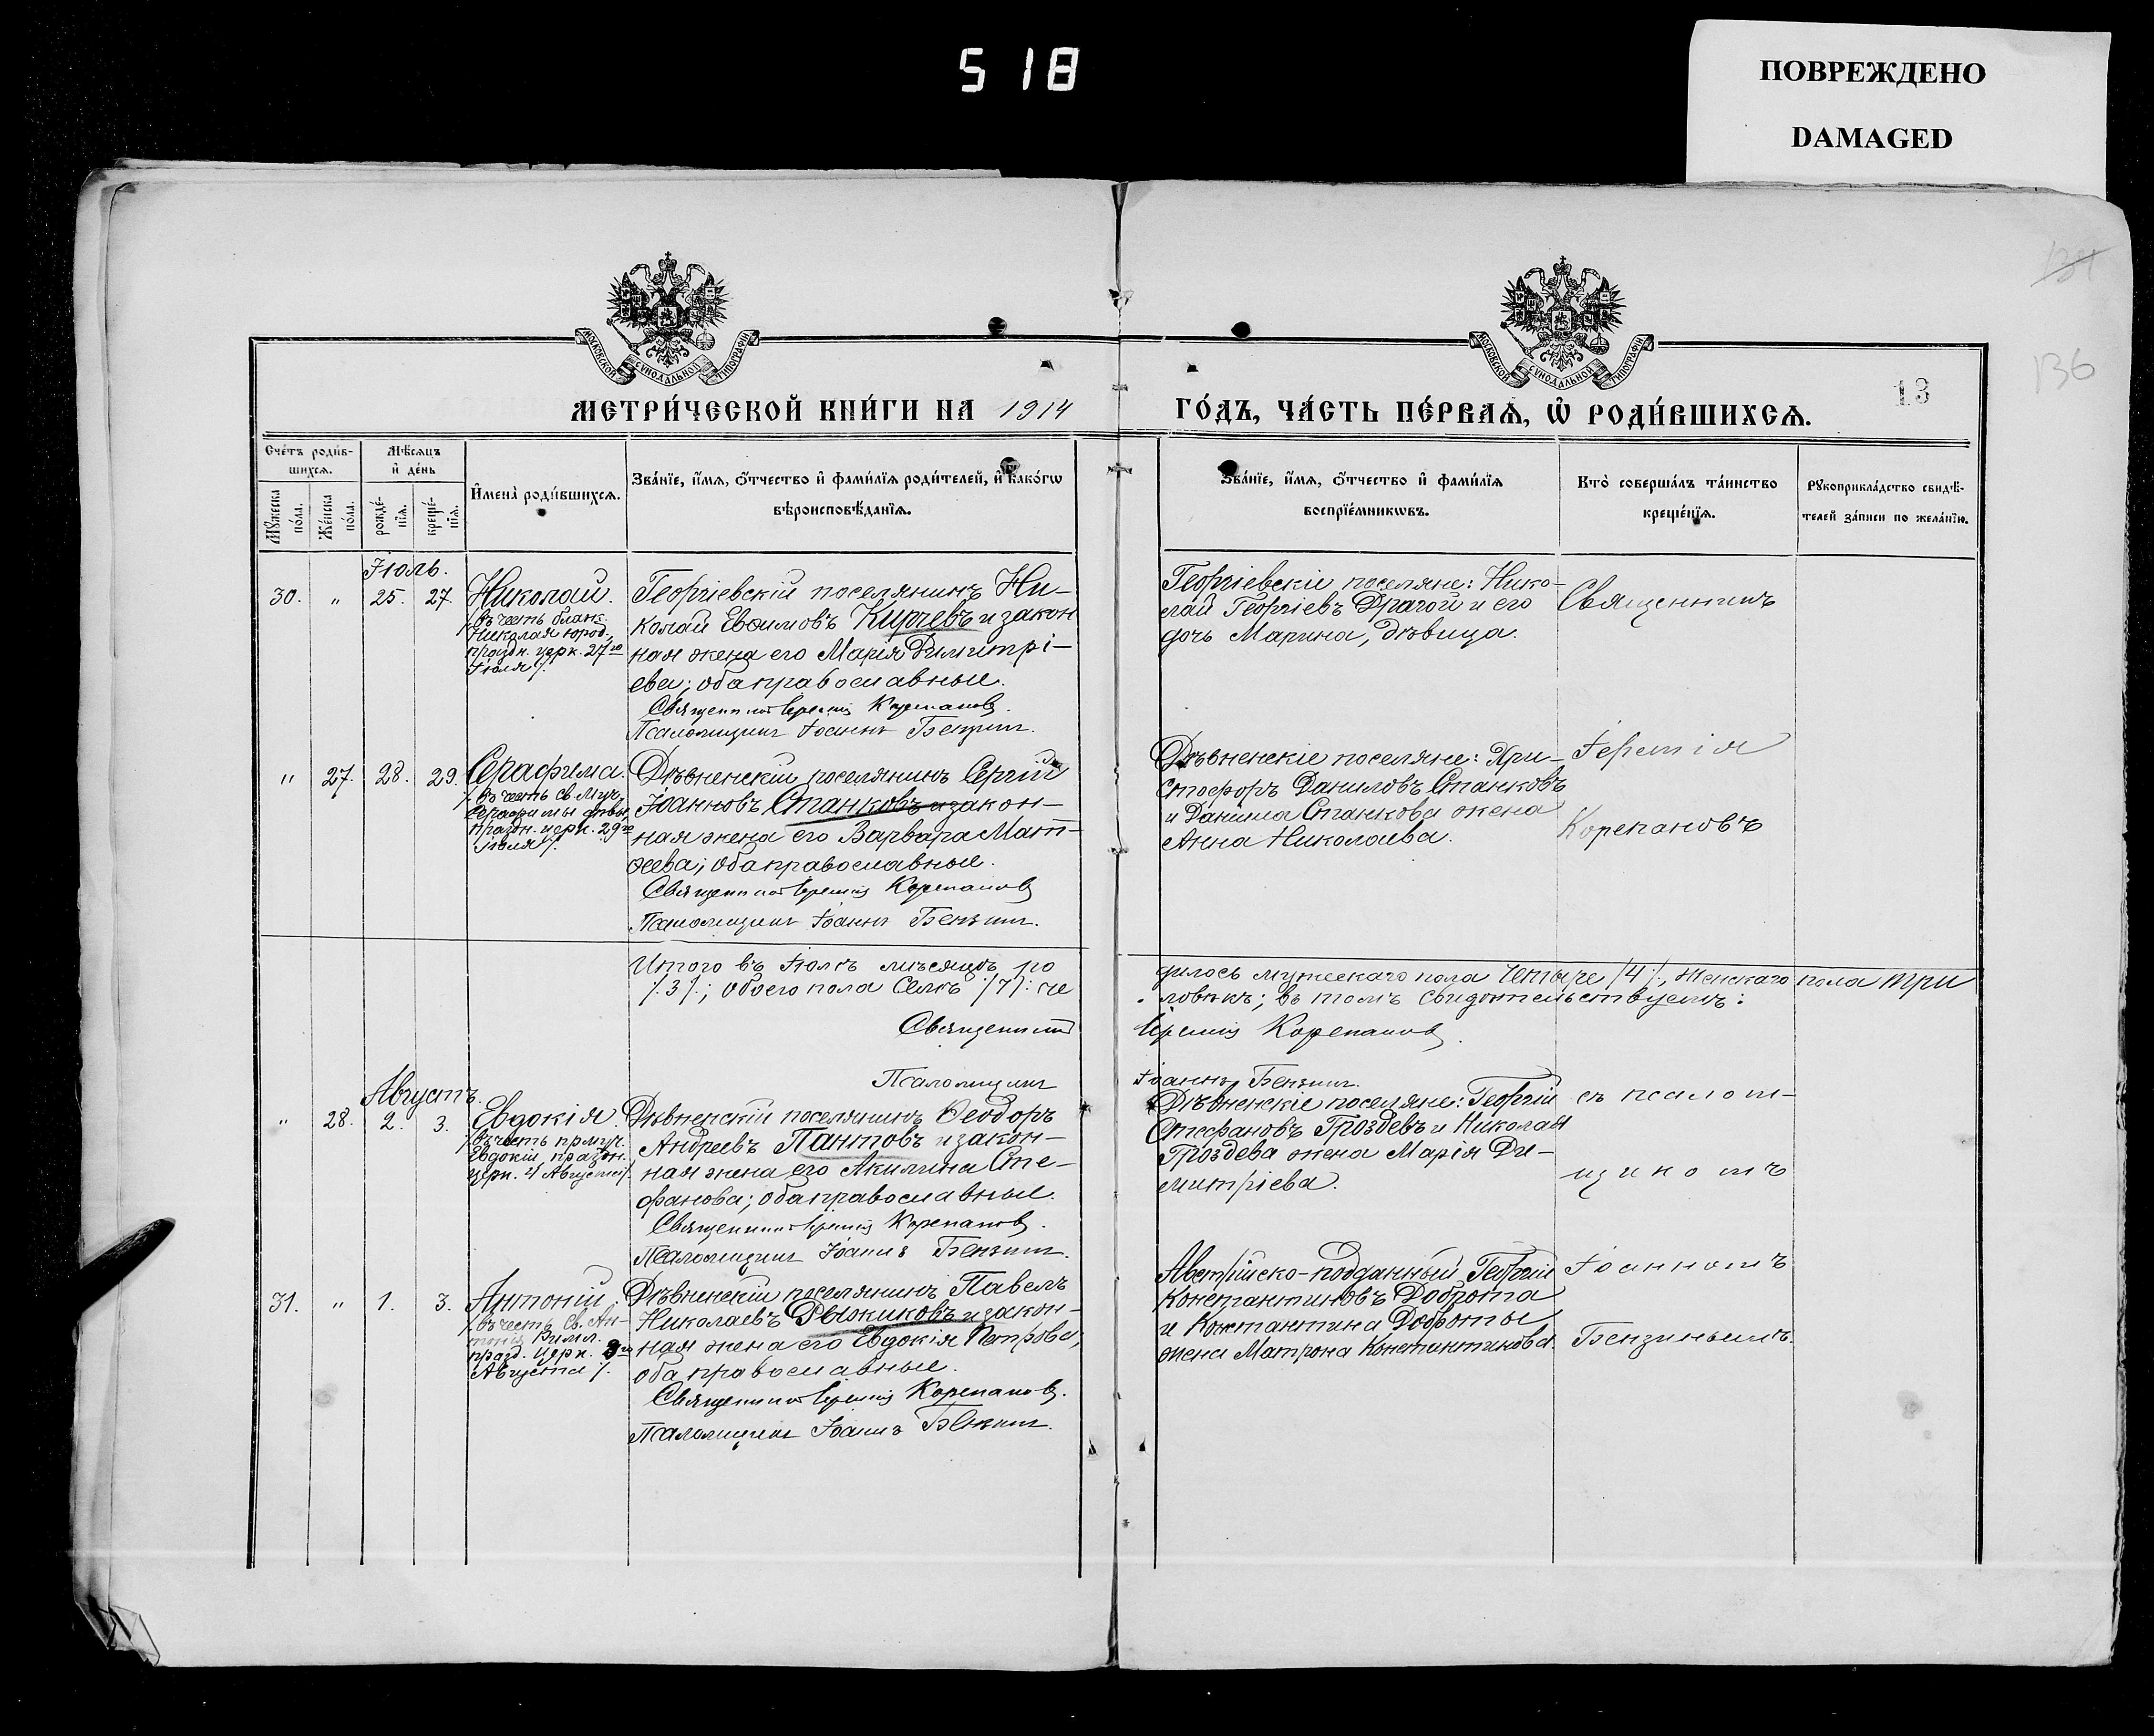 518
ПОВРЕЖДЕНО
DAMAGED
134
136
13
МОСКОВСКОЙ СѴНОДАЛЬНОЙ ТИПОГРАФІИ
МОСКОВСКОЙ СѴНОДАЛЬНОЙ ТИПОГРАФІИ
МЕТРИ́ЧЕСКОЙ КНИ́ГИ НА 1914
ГО́ДЪ, ЧА́СТЬ ПЕ́РВАѦ, Ѡ҆ РОДИ́ВШИХСѦ.
Сче́тъ роди́в-
шихсѧ.
Мꙋ́жеска по́ла.
Же́нска по́ла.
Мѣ́сѧцъ
и҆ де́нь
рожде́-
нїѧ.
креще́-
нїѧ.
И҆мена̀ роди́вшихсѧ.
Зва́нїе, и҆́мѧ, ѻ҆́тчество и҆ фами́лїѧ роди́телей, и҆ како́гѡ
вѣроисповѣ́данїѧ.
Зва́нїе, и҆́мѧ, ѻ҆́тчество и҆ фами́лїѧ
воспрїе́мникѡвъ.
Кто̀ соверша́лъ та́инство
креще́нїѧ.
Рꙋкоприкла́дство свидѣ́-
телей за́писи по жела́нїю.
Іюль.
30. " 25. 27. Николай.
/въ честь блаж.
Николая юрод.,
праздн. церк. 27го
Іюля/.
Георгіевскій поселянинъ Ни-
колай Евѳимовъ Курчевъ и закон
ная жена его Марія Димитрі-
ева; оба православные.
Священникъ Іеремія Корепановъ.
Псаломщикъ Іоаннъ Бензинъ.
Георгіевскіе поселяне: Нико-
лай Георгіевъ Драгой и его
дочь Марина, дѣвица.
Священникъ
" 27. 28. 29. Серафима.
/въ честь св. муч.
Серафимы дѣвы,
праздн. церк. 29го
Іюля/.
Дѣвненскій поселянинъ Сергій
Іоанновъ Станковъ и закон-
ная жена его Варвара Мат-
ѳеева; оба православные.
Священникъ Іеремія Корепановъ
Псаломщикъ Іоаннъ Бензинъ.
Дѣвненскіе поселяне: Хри-
стофоръ Даниловъ Станковъ
и Даніила Станкова жена
Анна Николаева.
Іеремія
Корепановъ
Итого въ Іюлѣ мѣсяцѣ ро
дилось мужескаго пола четыре /4/, женскаго пола три
/.3/.; обоего пола семь /7/: че
ловѣкъ; въ томъ свидѣтельствуемъ:
Священникъ
Іеремія Корепановъ.
Псаломщикъ
Іоаннъ Бензинъ.
Августъ.
" 28. 2. 3. Евдокія
/въ честь прмуч.
Евдокіи, праздн.
церк. 4 Августа/.
Дѣвненскій поселянинъ Ѳеодоръ
Андреевъ Пантовъ и закон-
ная жена его Акилина Сте-
фанова; оба православные.
Священникъ Іеремія Корепановъ.
Псаломщикъ Іоаннъ Бензинъ.
Дѣвненскіе поселяне: Георгій
Стефановъ Гроздевъ и Николая
Гроздева жена Марія Ди-
митріева.
съ псалом-
щикомъ
31. " 1. 3. Антоній
/въ честь Св. Ан-
тонія Римл.
празд. церк. 3го
Августа/.
Дѣвненскій поселянинъ Павелъ
Николаевъ Рыжиковъ и закон-
ная жена его Евдокія Петрова;
оба православные.
Священникъ Іеремія Корепановъ.
Псаломщикъ Іоаннъ Бензинъ.
Австрійско-подданный Георгій
Константиновъ Доброта
и Константина Доброты
жена Матрона Константинова.
Іоанномъ
Бензинымъ.